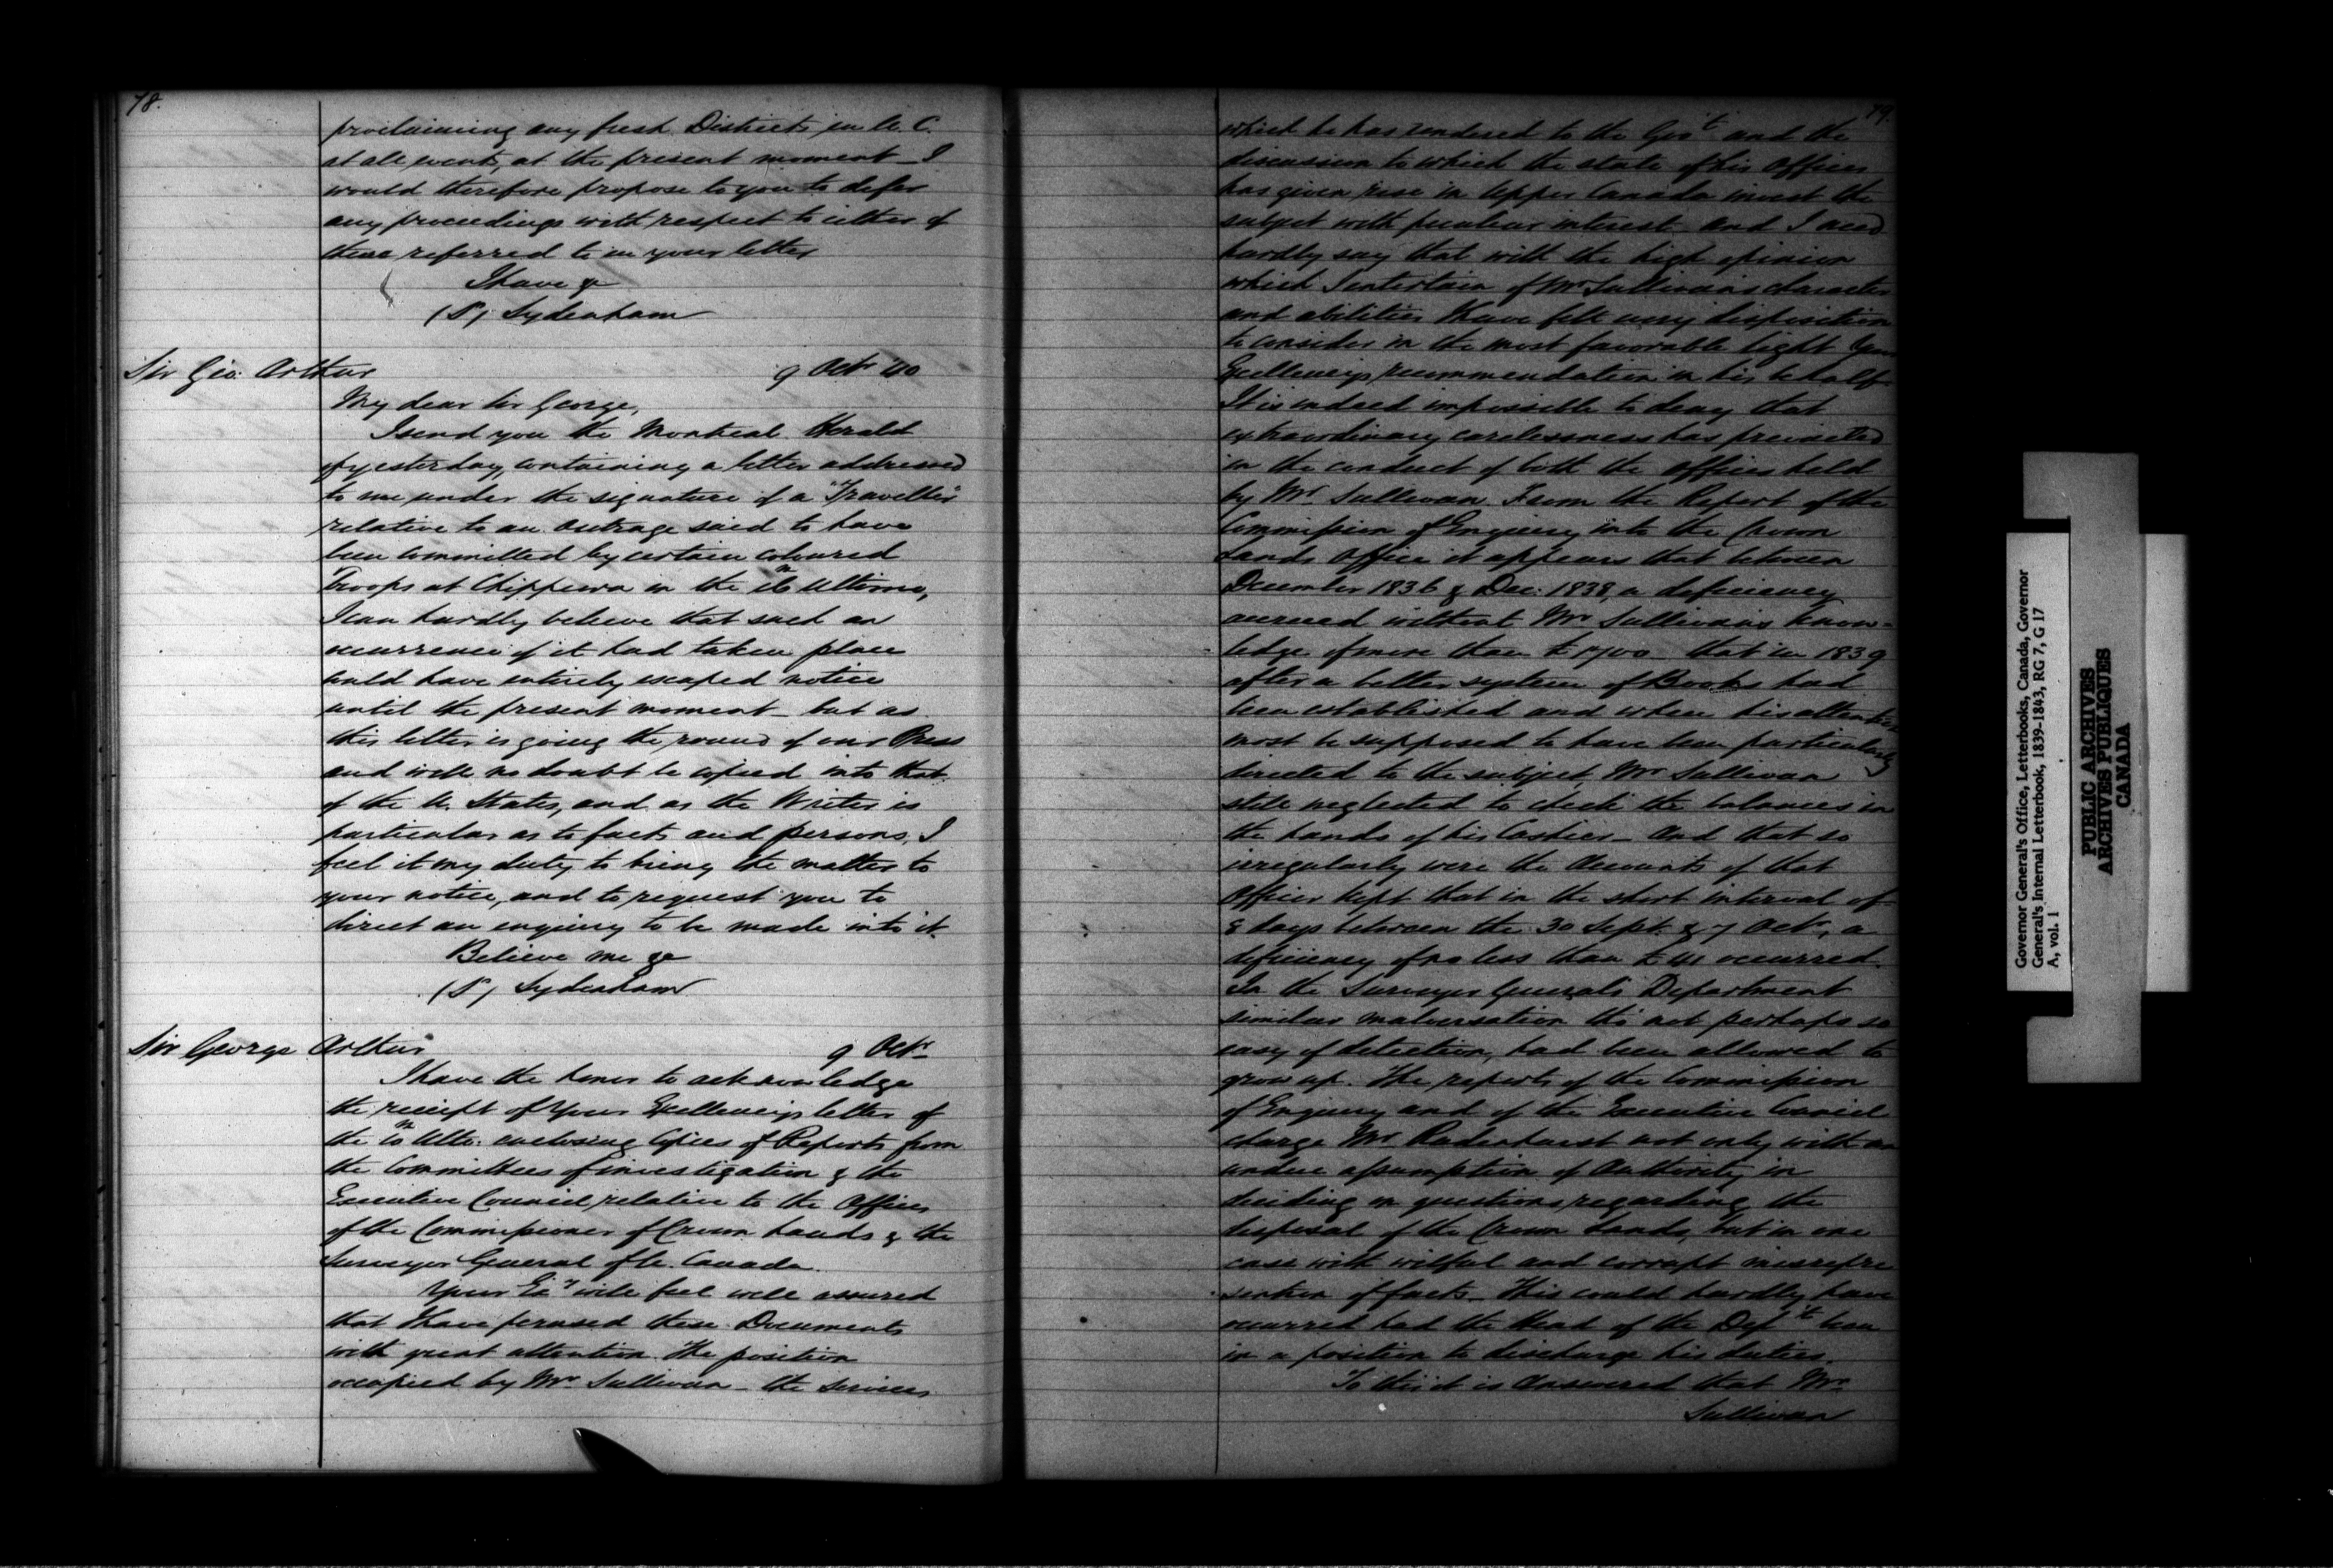 78.
proclaiming any fresh Districts in U. C.
at all events, at the present moment – I
would therefore propose to you to defer
any proceedings with respect to either of
those referred to in your letter
I have &
(S) Sydenham
Sir Geo: Arthur 9 Octr '40
My dear Sir George,
I send you the Montreal Herald
of yesterday, containing a letter addressed
to me under the signature of a "Traveller"
relative to an outrage said to have
been committed by certain coloured
Troops at Chippewa in the Ultimo,
I can hardly believe that such an
occurrence if it had taken place
could have entirely escaped notice
until the present moment – but as
this letter is going the round of our Press
and will no doubt be copied into that
of the U. States, and as the Writer is
particular as to facts and persons, I
feel it my duty to bring the matter to
your notice, and to request you to
direct an enquiry to be made into it.
Believe me &c
(S) Sydenham
Sir George Arthur 9 Octr
I have the honor to acknowledge
the receipt of Your Excellency's letter of
the Ulto: enclosing Copies of Reports from
the Committees of investigation & the
Executive Council relative to the Offices
of the Commissioner of Crown Lands & the
Surveyor General of U. Canada.
Your Exy will feel well assured
that I have perused these Documents
with great attention. The position
occupied by Mr Sullivan – the services
79.
which he has rendered to the Govt and the
discussion to which the state of his Offices
has given rise in Upper Canada invest the
subject with peculiar interest and I need
hardly say that with the high opinion
which I entertain of Mr Sullivan's character
and abilities I have felt every disposition
to consider in the most favorable light Your
Excellency's recommendation in his behalf
It is indeed impossible to deny that
extraordinary carelessness has prevailed
in the conduct of both the offices held
by Mr Sullivan. From the Report of the
Commission of Enquiry into the Crown
Lands Office it appears that between
December 1836 & Dec: 1838, a deficiency
accrued without Mr Sullivan's know-
ledge of more than £ – that in 1839
after a better system of Books had
been established and when his attention
must be supposed to have been particularly
directed to the subject, Mr Sullivan
still neglected to check the balances in
the hands of his Cashier – And that so
irregularly were the Accounts of that
Officer kept that in the short interval of
8 days between the 30 Sept. & 7 Octr, a
deficiency of no less than £ occurred.
In the Surveyor General's Department
similar malversation tho' not perhaps so
easy of detection, had been allowed to
grow up. The reports of the Commission
of Enquiry and of the Executive Council
charge Mr Radenhurst not only with an
undue assumption of Authority in
deciding on questions regarding the
disposal of the Crown Lands, but in one
case with wilful and corrupt misrepre
sentation of facts – This could hardly have
occurred had the Head of the Dept been
in a position to discharge his duties.
To this it is answered that Mr
Sullivan
Governor General's Office, Letterbooks, Canada, Governor
General's Internal Letterbook, 1839-1843, RG 7, G 17
A, vol. 1
PUBLIC ARCHIVES
ARCHIVES PUBLIQUES
CANADA